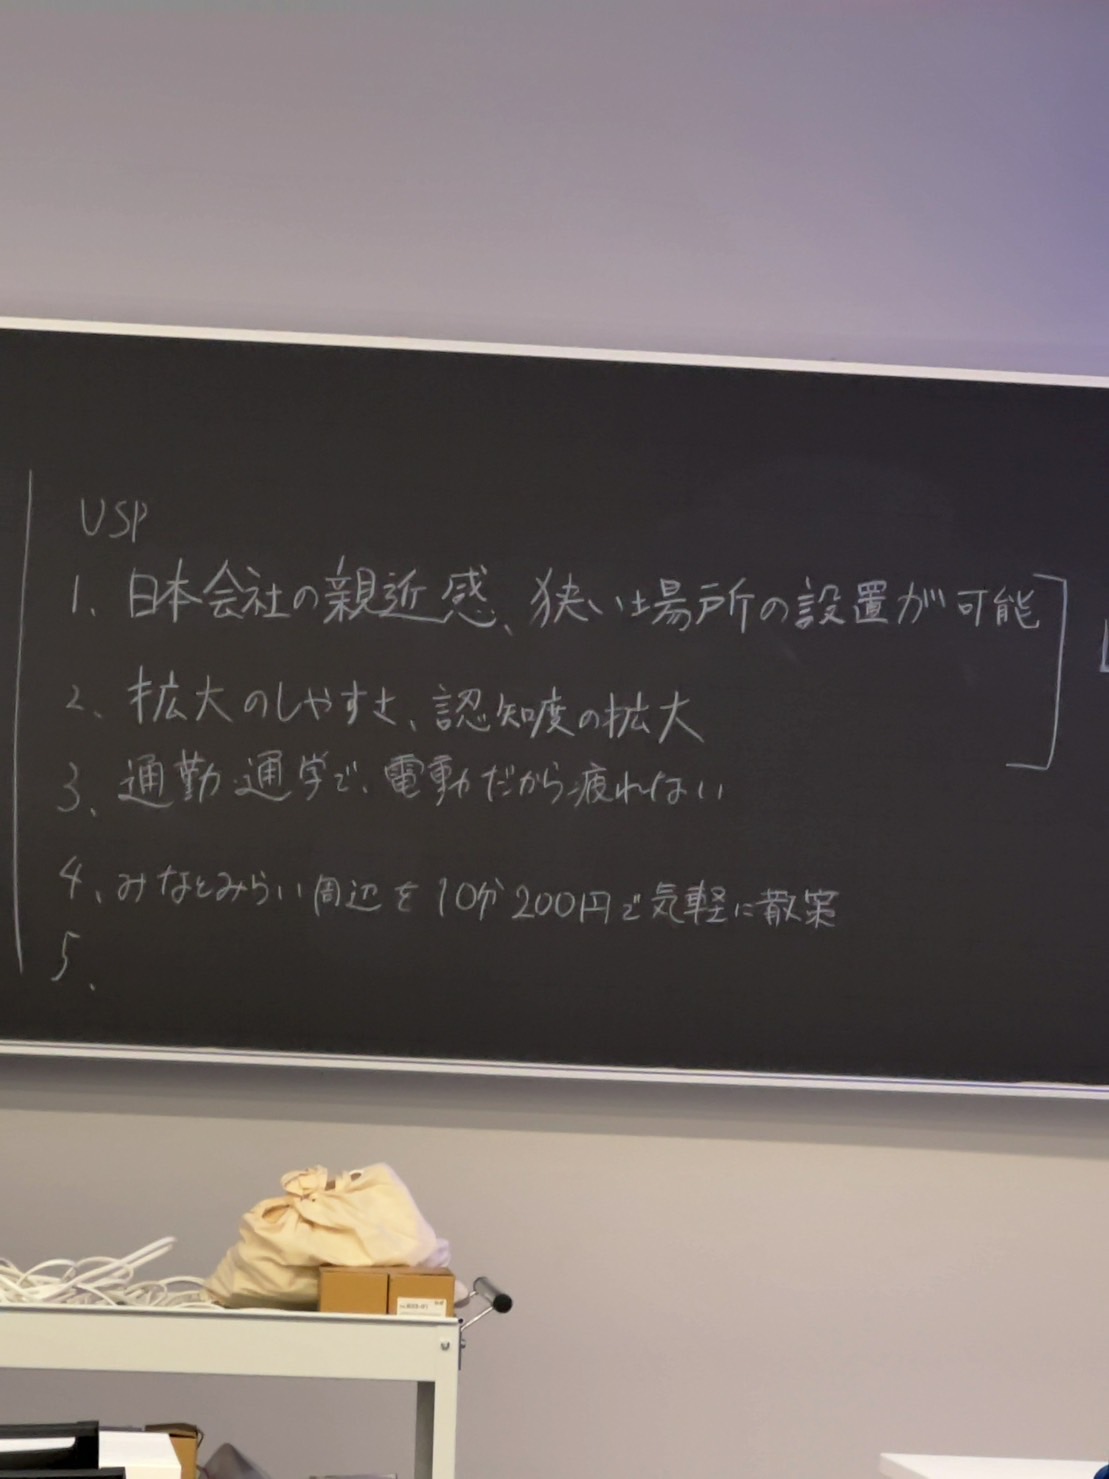 USP
1、日本会社の親近感、狭い場所の設置が可能
2、拡大のしやすさ、認知度の拡大
3、通勤通学で、電動だから疲れない
4、みなとみらい周辺を10分200円で気軽に散策
5、